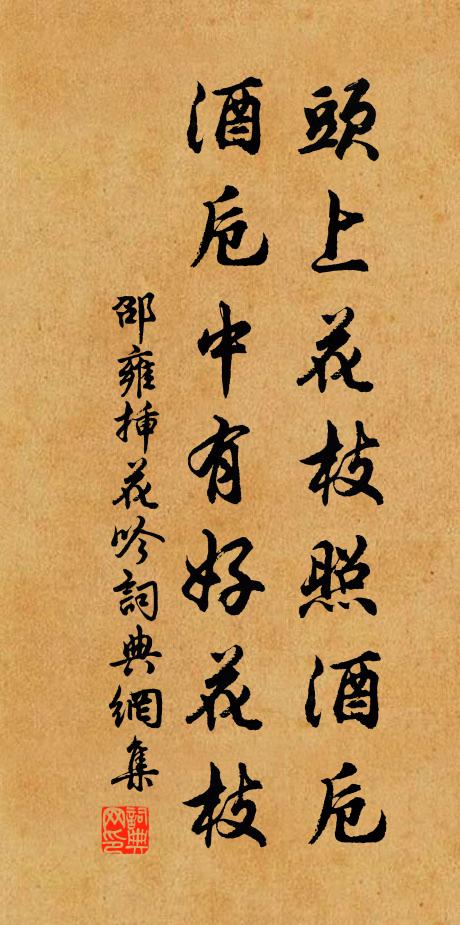 頭上花枝照酒卮
酒卮中有好花枝
邵雍插花吟詞典網集
詞典网印